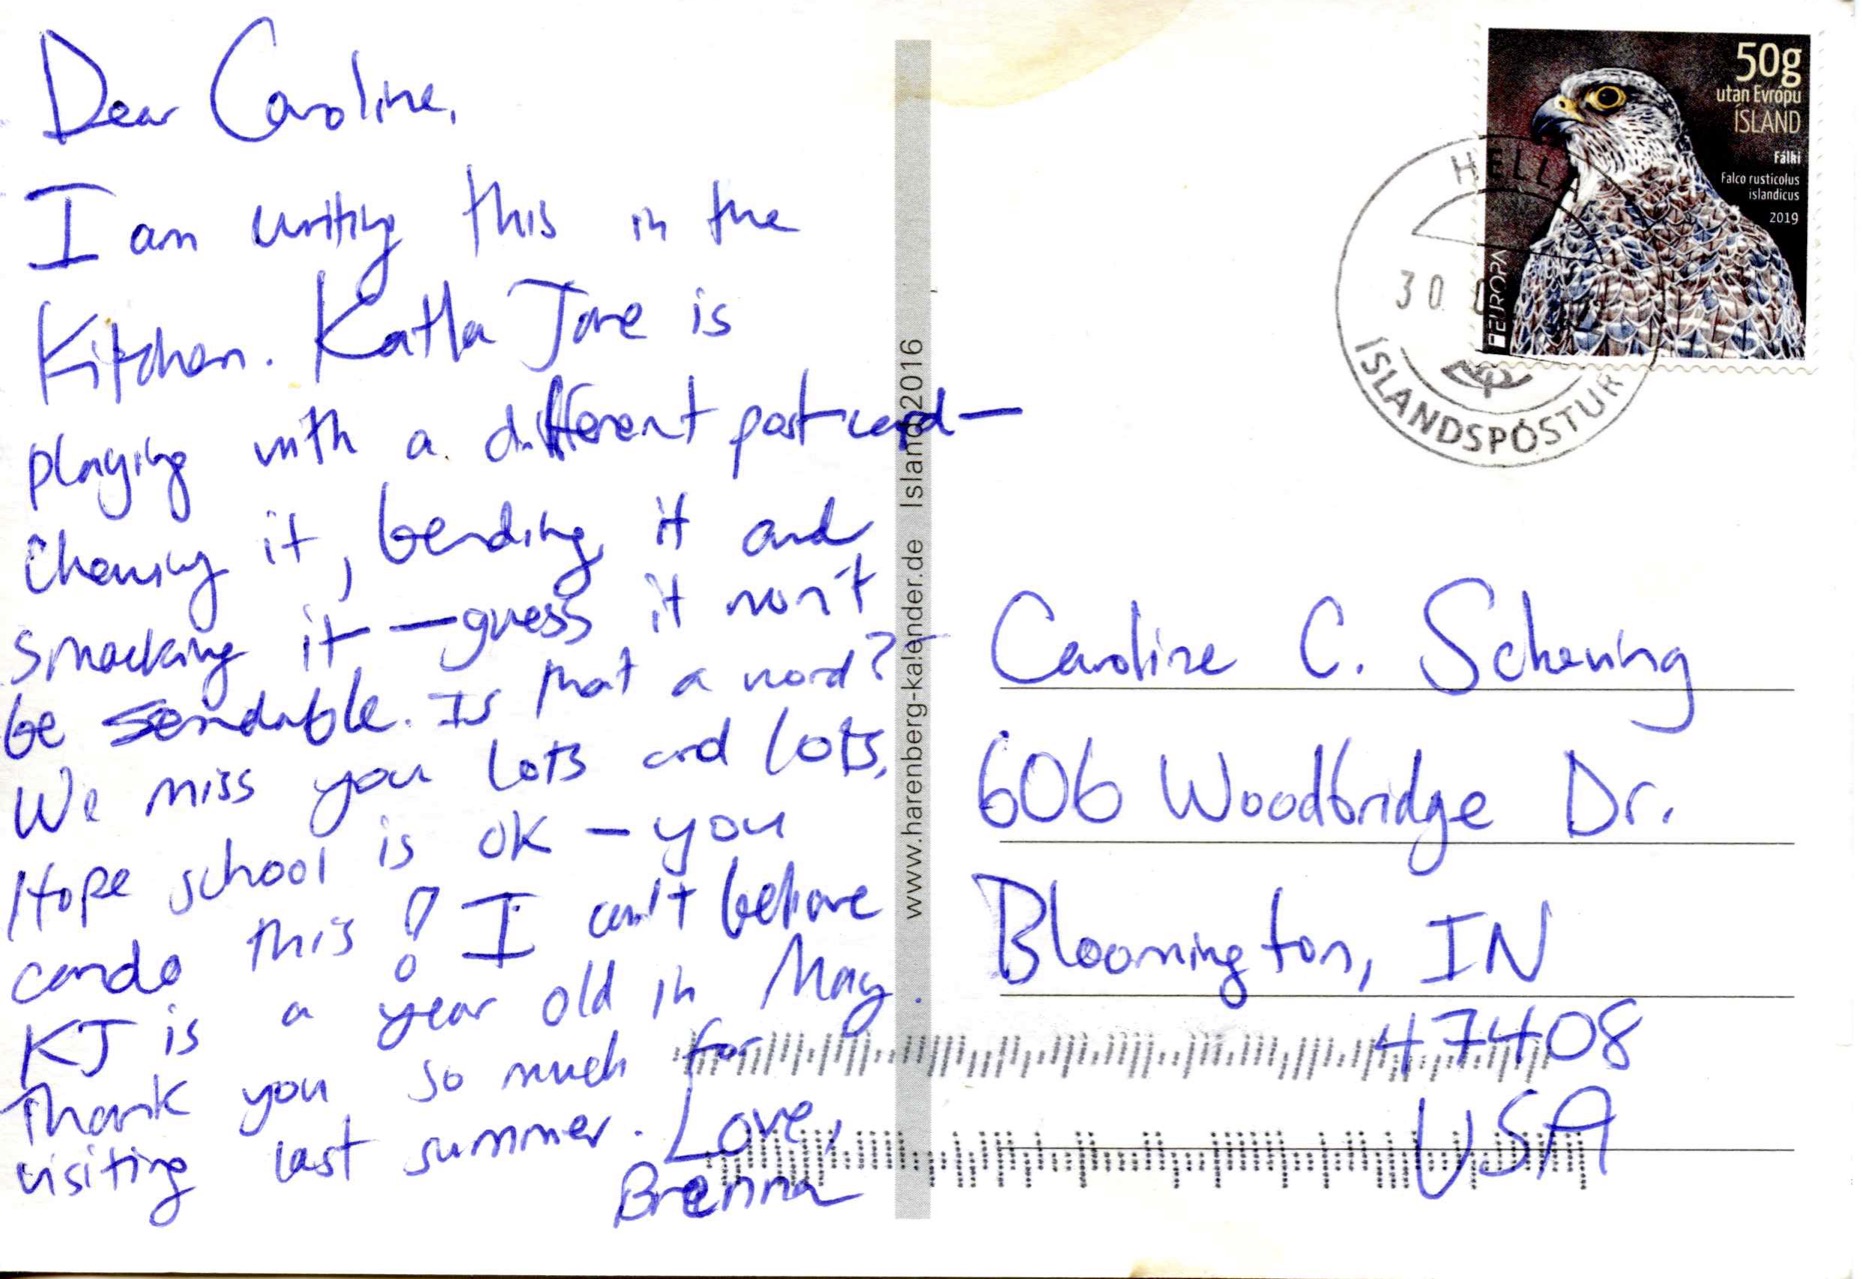 Dear Caroline,
I am writing this in the
Kitchen. Katla Jane is
playing with a different postcard—
chewing it, bending it and
smacking it — guess it won't
be sendable. Is that a word?
We miss you lots and lots.
Hope school is ok – you
can do this! I can't believe
KJ is a year old in May.
Thank you so much for
visiting last summer. Love,
Brenna
www.harenberg-kalender.de Island 2016
50g
utan Evrópu
ÍSLAND
Fálki
Falco rusticolus
islandicus
2019
EUROPA
HELLA
30
ÍSLANDSPÓSTUR
Caroline C. Schening
606 Woodbridge Dr.
Bloomington, IN
47408
USA